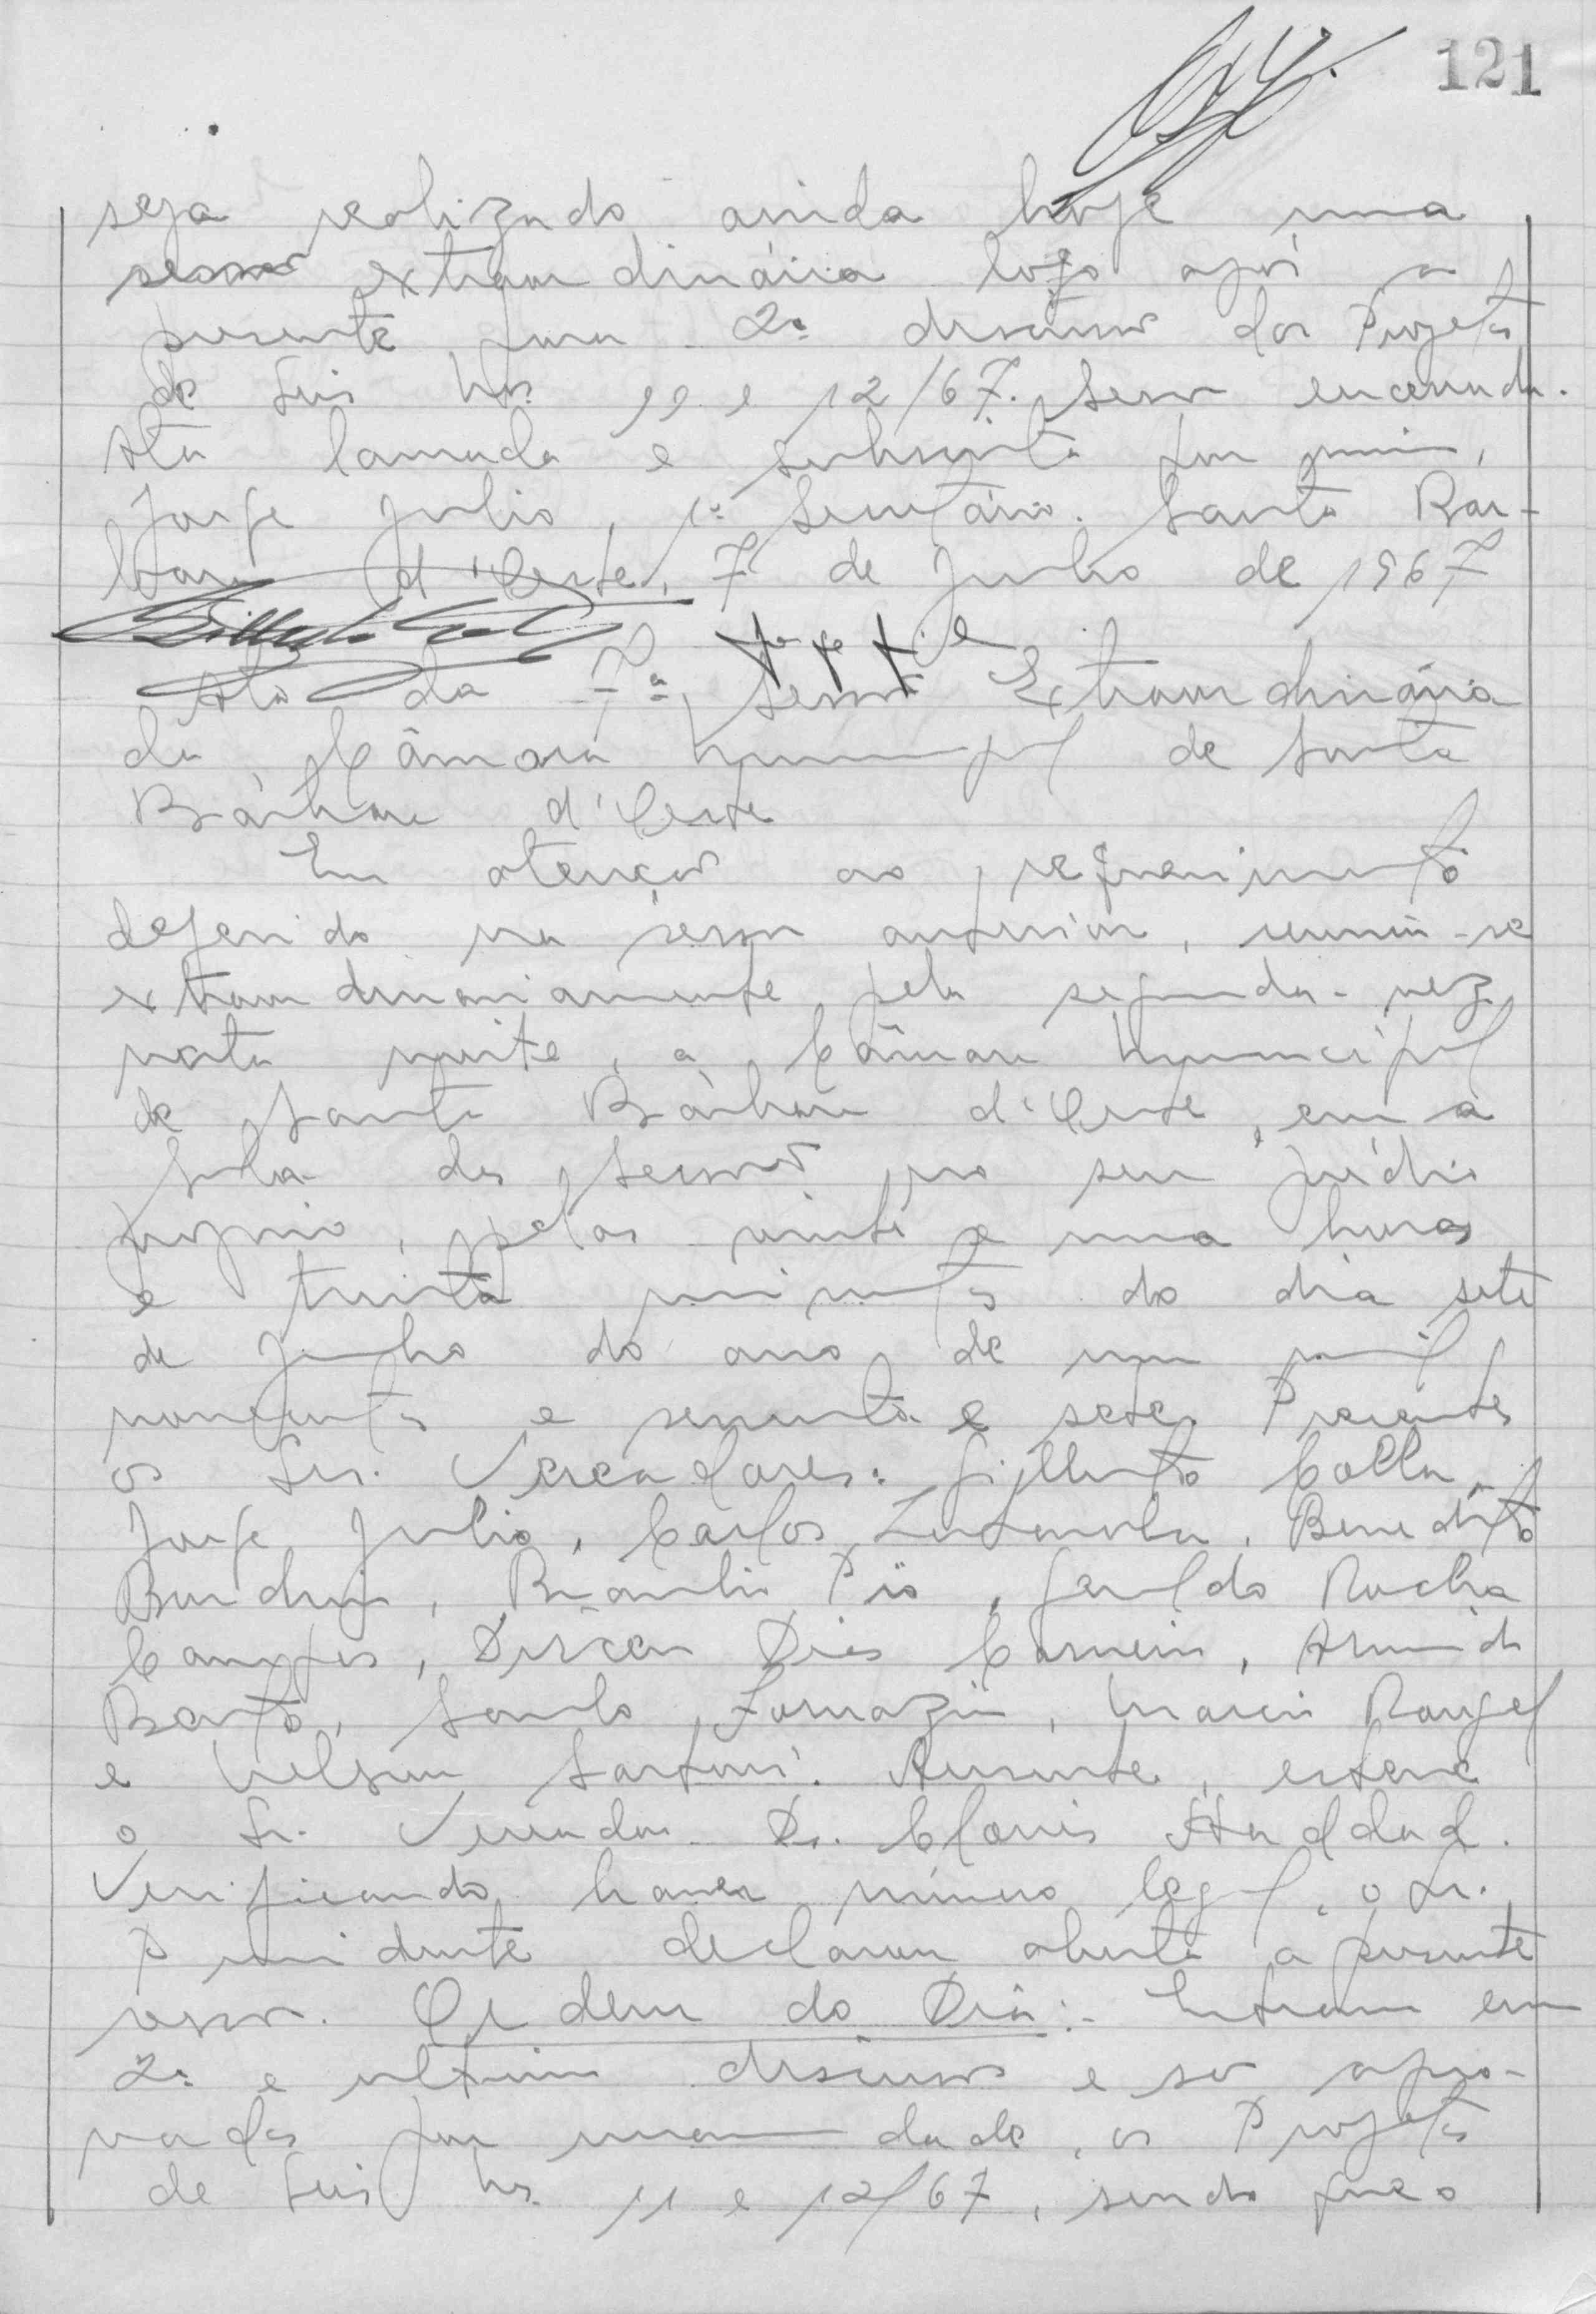 121
seja realizado ainda hoje uma
sessão extraordinária logo após a
presente para 2ª discussão dos Projetos
de Leis Nos. 11 e 12/67. Sessão encerrada.
Ata lavrada e subscrita por mim,
Jorge Julio, 1º Secretário. Santa Bár-
bara d'Oeste, 7 de Junho de 1967
Ata da 7ª Sessão Extraordinária
da Câmara Municipal de Santa
Bárbara d'Oeste
Em atenção ao requerimento
deferido na sessão anterior, reuniu-se
extraordinariamente pela segunda vez
nesta noite, a Câmara Municipal
de Santa Bárbara d'Oeste, em a
Sala das Sessões no seu prédio
próprio, pelas vinte e uma horas
e trinta minutos do dia sete
de Junho do ano de um mil
novecentos e sessenta e sete. Presentes
os Srs. Vereadores: Gilberto Colla,
Jorge Julio, Carlos, Benedito
, Braulio Pio, Geraldo Rocha
Campos, Dirceu Dias Carneiro, Armindo
Bento, Santo Fornazin, Marcio Rangel
e Nelson Sartori. Ausente, esteve
o Sr. Vereador Dr. Clovis Haddad.
Verificando haver número legal, o Sr.
Presidente declarou aberta a presente
sessão. Ordem do Dia:- Entram em
2ª e ultima discussão e são apro-
vados por unanimidade, os Projetos
de Leis Nos. 11 e 12/67, sendo que o